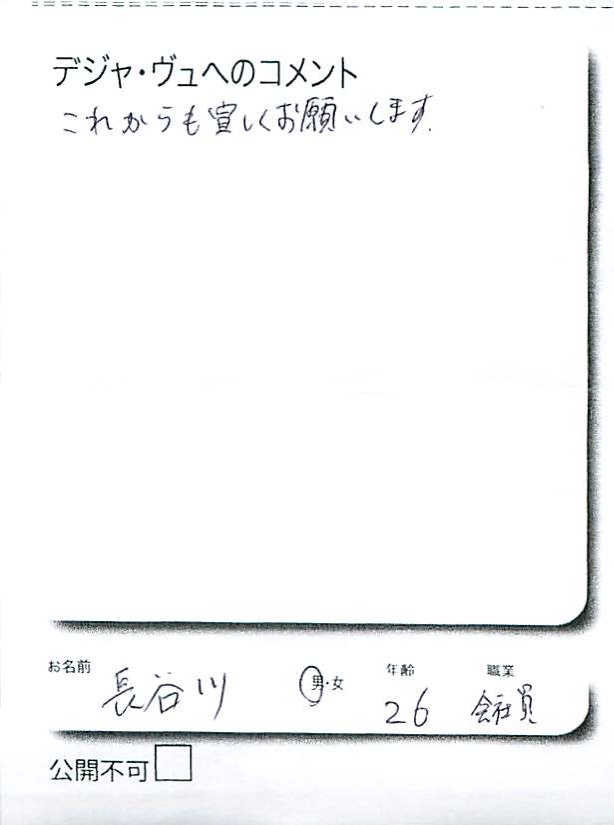 デジャ・ヴュへのコメント
これからも宜しくお願いします.
お名前 年齢 職業
長谷川 男・女 26 会社員
公開不可